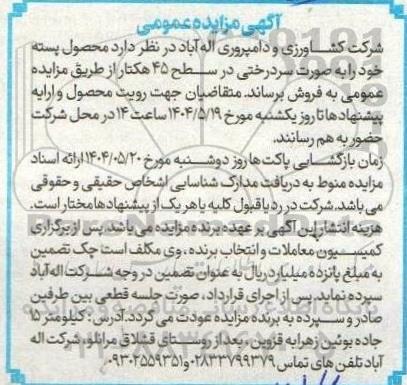 آگهی مزایده عمومی
شرکت کشاورزی و دامپروری اله آباد در نظر دارد محصول پسته
خود را به صورت سردرختی در سطح ۴۵ هکتار از طریق مزایده
عمومی به فروش برساند. متقاضیان جهت رویت محصول و ارایه
پیشنهادها تا روز یکشنبه مورخ ۱۴۰۴/۵/۱۹ ساعت ۱۴ در محل شرکت
حضور به هم رسانند.
زمان بازگشایی پاکت ها روز دوشنبه مورخ ۱۴۰۴/۰۵/۲۰ ارائه اسناد
مزایده منوط به دریافت مدارک شناسایی اشخاص حقیقی و حقوقی
می باشد. شرکت در رد یا قبول کلیه یا هر یک از پیشنهادها مختار است.
هزینه انتشار این آگهی بر عهده برنده مزایده می باشد. پس از برگزاری
کمیسیون معاملات و انتخاب برنده، وی مکلف است چک تضمین
به مبلغ پانزده میلیارد ریال به عنوان تضمین در وجه شرکت اله آباد
سپرده نماید. پس از اجرای قرارداد، صورت جلسه قطعی بین طرفین
صادر و سپرده به برنده مزایده عودت می گردد. آدرس: کیلومتر ۱۵
جاده بوئین زهرا به قزوین، بعد از روستای قشلاق مرانلو، شرکت اله
آباد تلفن تماس ۰۲۸۳۳۷۹۹۳۷۹ و ۰۹۳۰۲۵۵۹۳۵۱